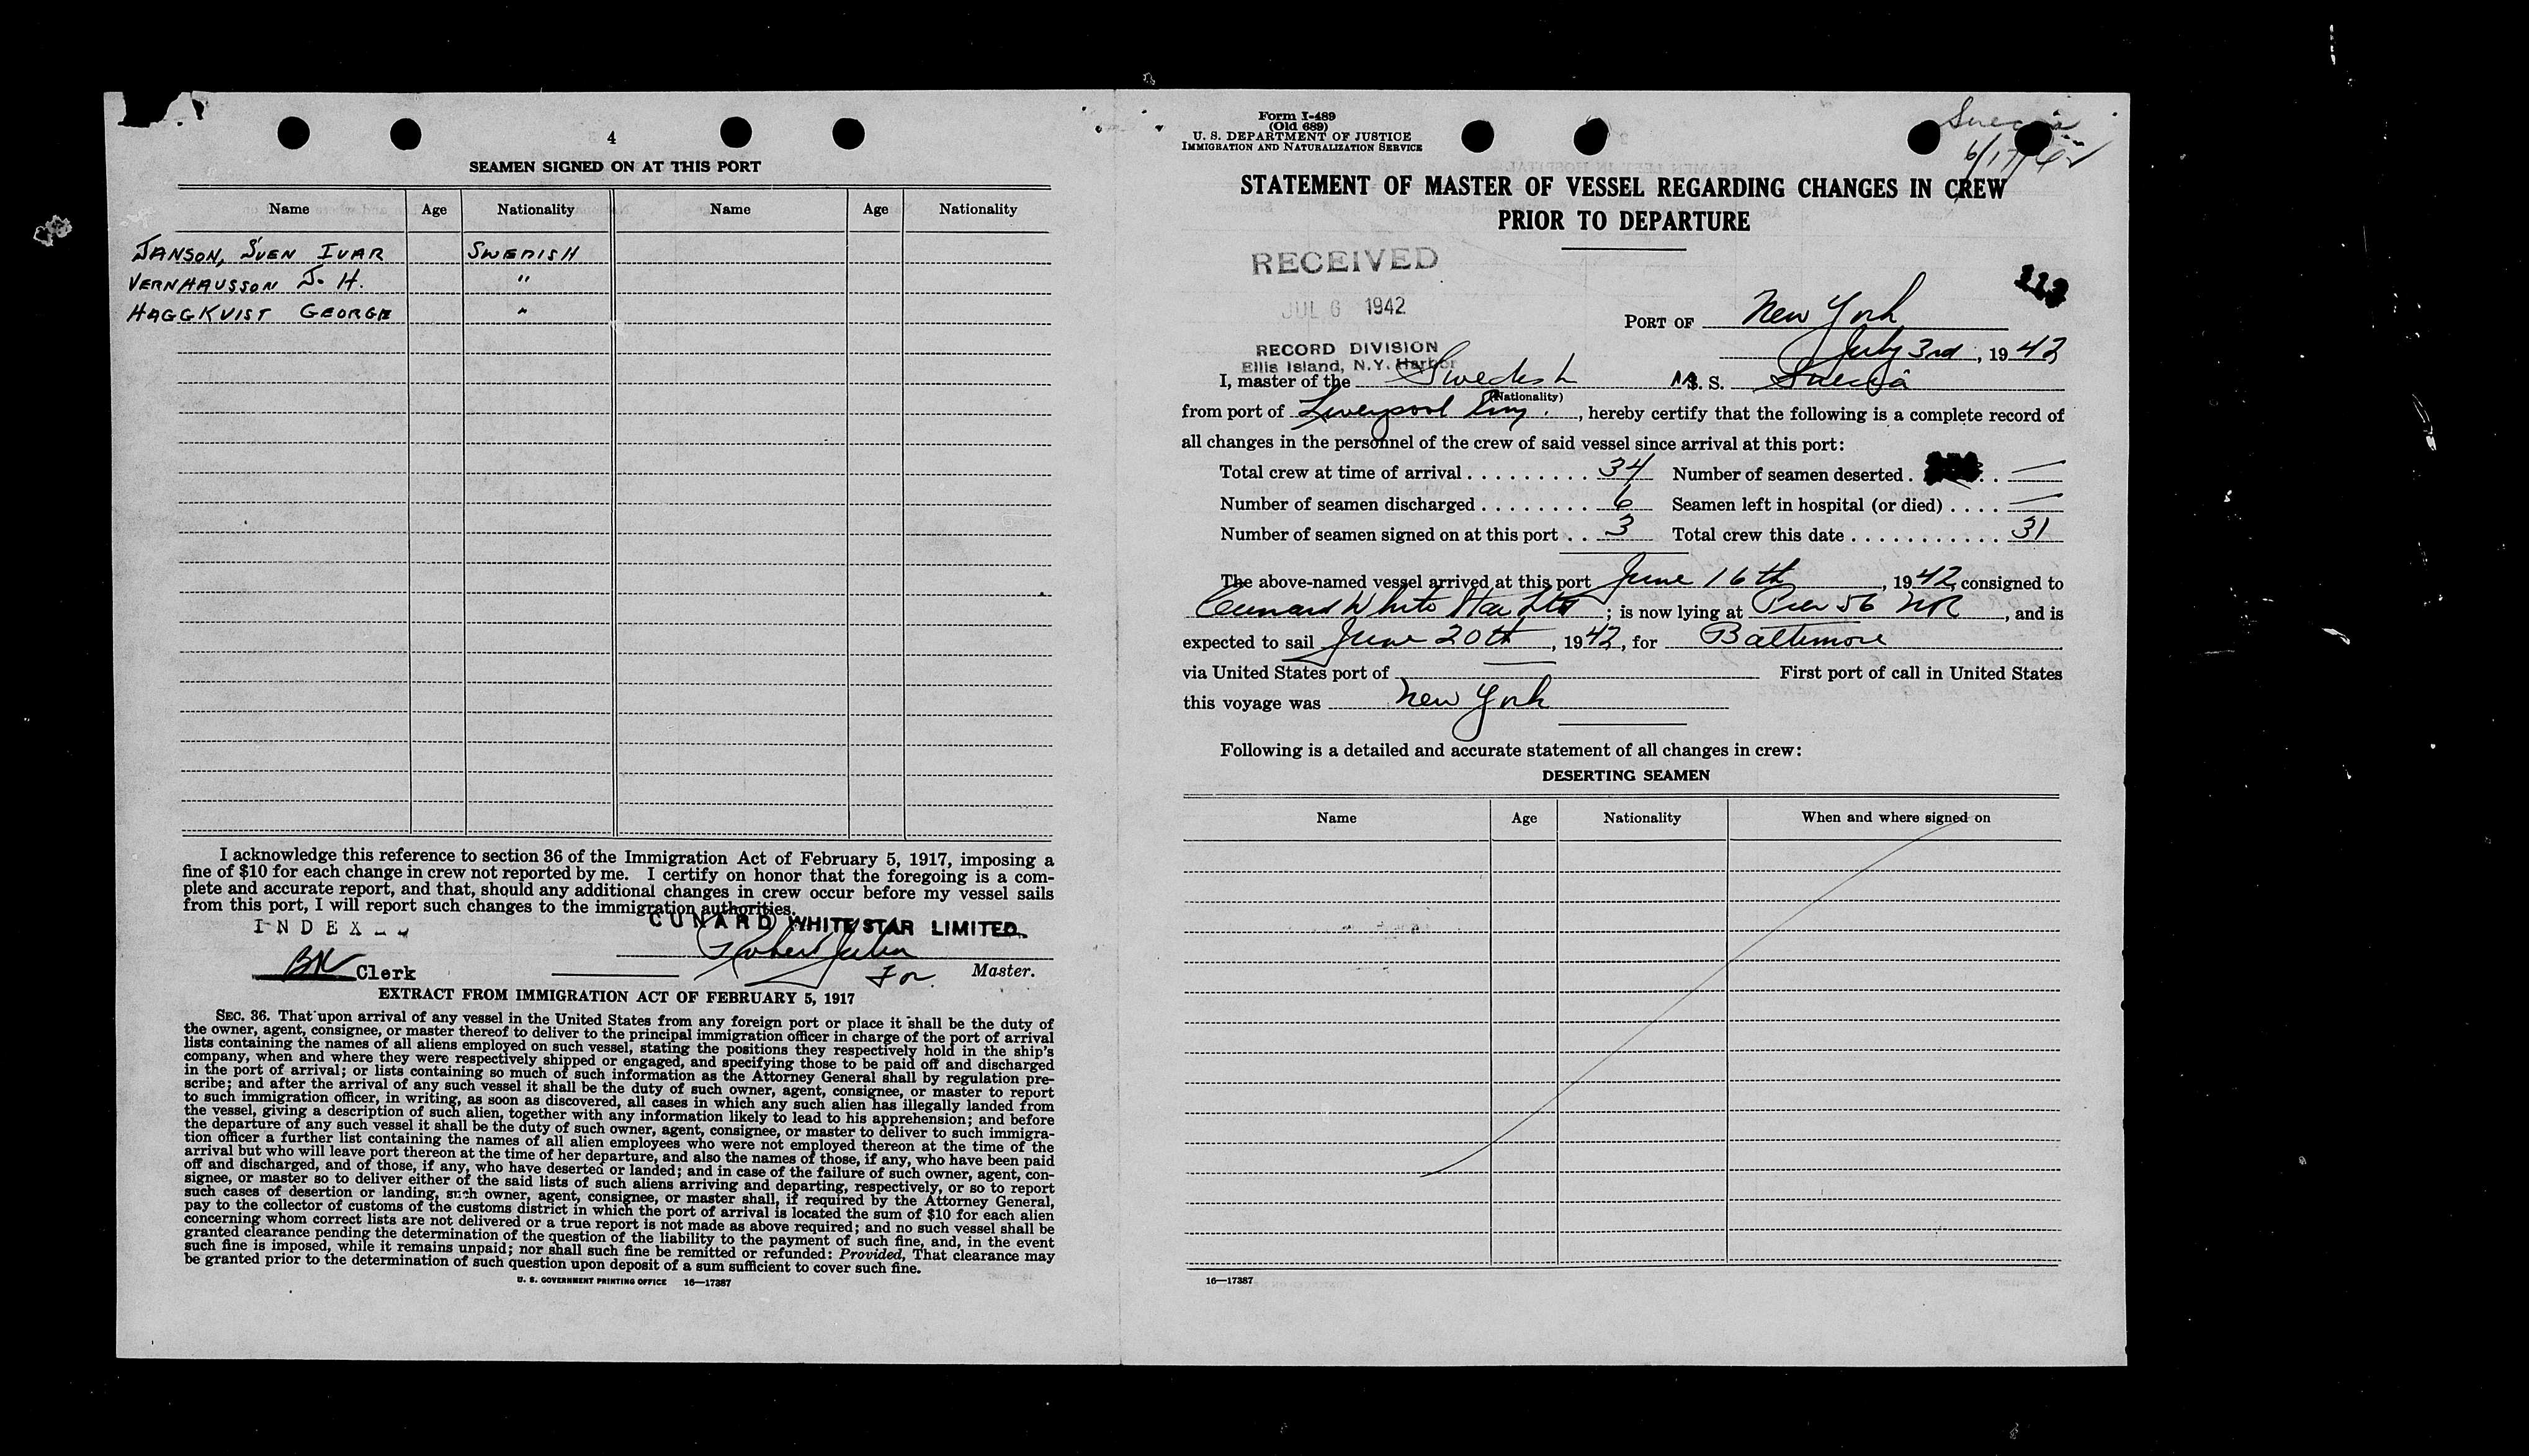 4
SEAMEN SIGNED ON AT THIS PORT
Name Age Nationality Name Age Nationality
JANSON, SVEN IVAR SWEDISH
VERNHAUSSON J. H. "
HAGGKVIST GEORGE "
I acknowledge this reference to section 36 of the Immigration Act of February 5, 1917, imposing a
fine of $10 for each change in crew not reported by me. I certify on honor that the foregoing is a com-
plete and accurate report, and that, should any additional changes in crew occur before my vessel sails
from this port, I will report such changes to the immigration authorities.
CUNARD WHITE STAR LIMITED.
INDEX
BK Clerk
For Master.
EXTRACT FROM IMMIGRATION ACT OF FEBRUARY 5, 1917
SEC. 36. That upon arrival of any vessel in the United States from any foreign port or place it shall be the duty of
the owner, agent, consignee, or master thereof to deliver to the principal immigration officer in charge of the port of arrival
lists containing the names of all aliens employed on such vessel, stating the positions they respectively hold in the ship's
company, when and where they were respectively shipped or engaged, and specifying those to be paid off and discharged
in the port of arrival; or lists containing so much of such information as the Attorney General shall by regulation pre-
scribe; and after the arrival of any such vessel it shall be the duty of such owner, agent, consignee, or master to report
to such immigration officer, in writing, as soon as discovered, all cases in which any such alien has illegally landed from
the vessel, giving a description of such alien, together with any information likely to lead to his apprehension; and before
the departure of any such vessel it shall be the duty of such owner, agent, consignee, or master to deliver to such immigra-
tion officer a further list containing the names of all alien employees who were not employed thereon at the time of the
arrival but who will leave port thereon at the time of her departure, and also the names of those, if any, who have been paid
off and discharged, and of those, if any, who have deserted or landed; and in case of the failure of such owner, agent, con-
signee, or master so to deliver either of the said lists of such aliens arriving and departing, respectively, or so to report
such cases of desertion or landing, such owner, agent, consignee, or master shall, if required by the Attorney General,
pay to the collector of customs of the customs district in which the port of arrival is located the sum of $10 for each alien
concerning whom correct lists are not delivered or a true report is not made as above required; and no such vessel shall be
granted clearance pending the determination of the question of the liability to the payment of such fine, and, in the event
such fine is imposed, while it remains unpaid; nor shall such fine be remitted or refunded: Provided, That clearance may
be granted prior to the determination of such question upon deposit of a sum sufficient to cover such fine.
U. S. GOVERNMENT PRINTING OFFICE 16—17387
Form I-489
(Old 689)
U. S. DEPARTMENT OF JUSTICE
IMMIGRATION AND NATURALIZATION SERVICE
Suecia
6/17/42
STATEMENT OF MASTER OF VESSEL REGARDING CHANGES IN CREW
PRIOR TO DEPARTURE
RECEIVED
JUL 6 1942
RECORD DIVISION
Ellis Island, N.Y. Harbor
PORT OF New York
July 3rd, 1942
I, master of the Swedish M. S. Suecia
(Nationality)
from port of Liverpool Eng., hereby certify that the following is a complete record of
all changes in the personnel of the crew of said vessel since arrival at this port:
Total crew at time of arrival . . . . . . . . . 34 Number of seamen deserted . . . —
Number of seamen discharged . . . . . . . . 6 Seamen left in hospital (or died) . . . . —
Number of seamen signed on at this port . . 3 Total crew this date . . . . . . . . . . . 31
The above-named vessel arrived at this port June 16th, 1942, consigned to
Cunard White Star Ltd; is now lying at Pier 56 NR, and is
expected to sail June 20th, 1942, for Baltimore
via United States port of First port of call in United States
this voyage was New York
Following is a detailed and accurate statement of all changes in crew:
DESERTING SEAMEN
Name Age Nationality When and where signed on
16—17387